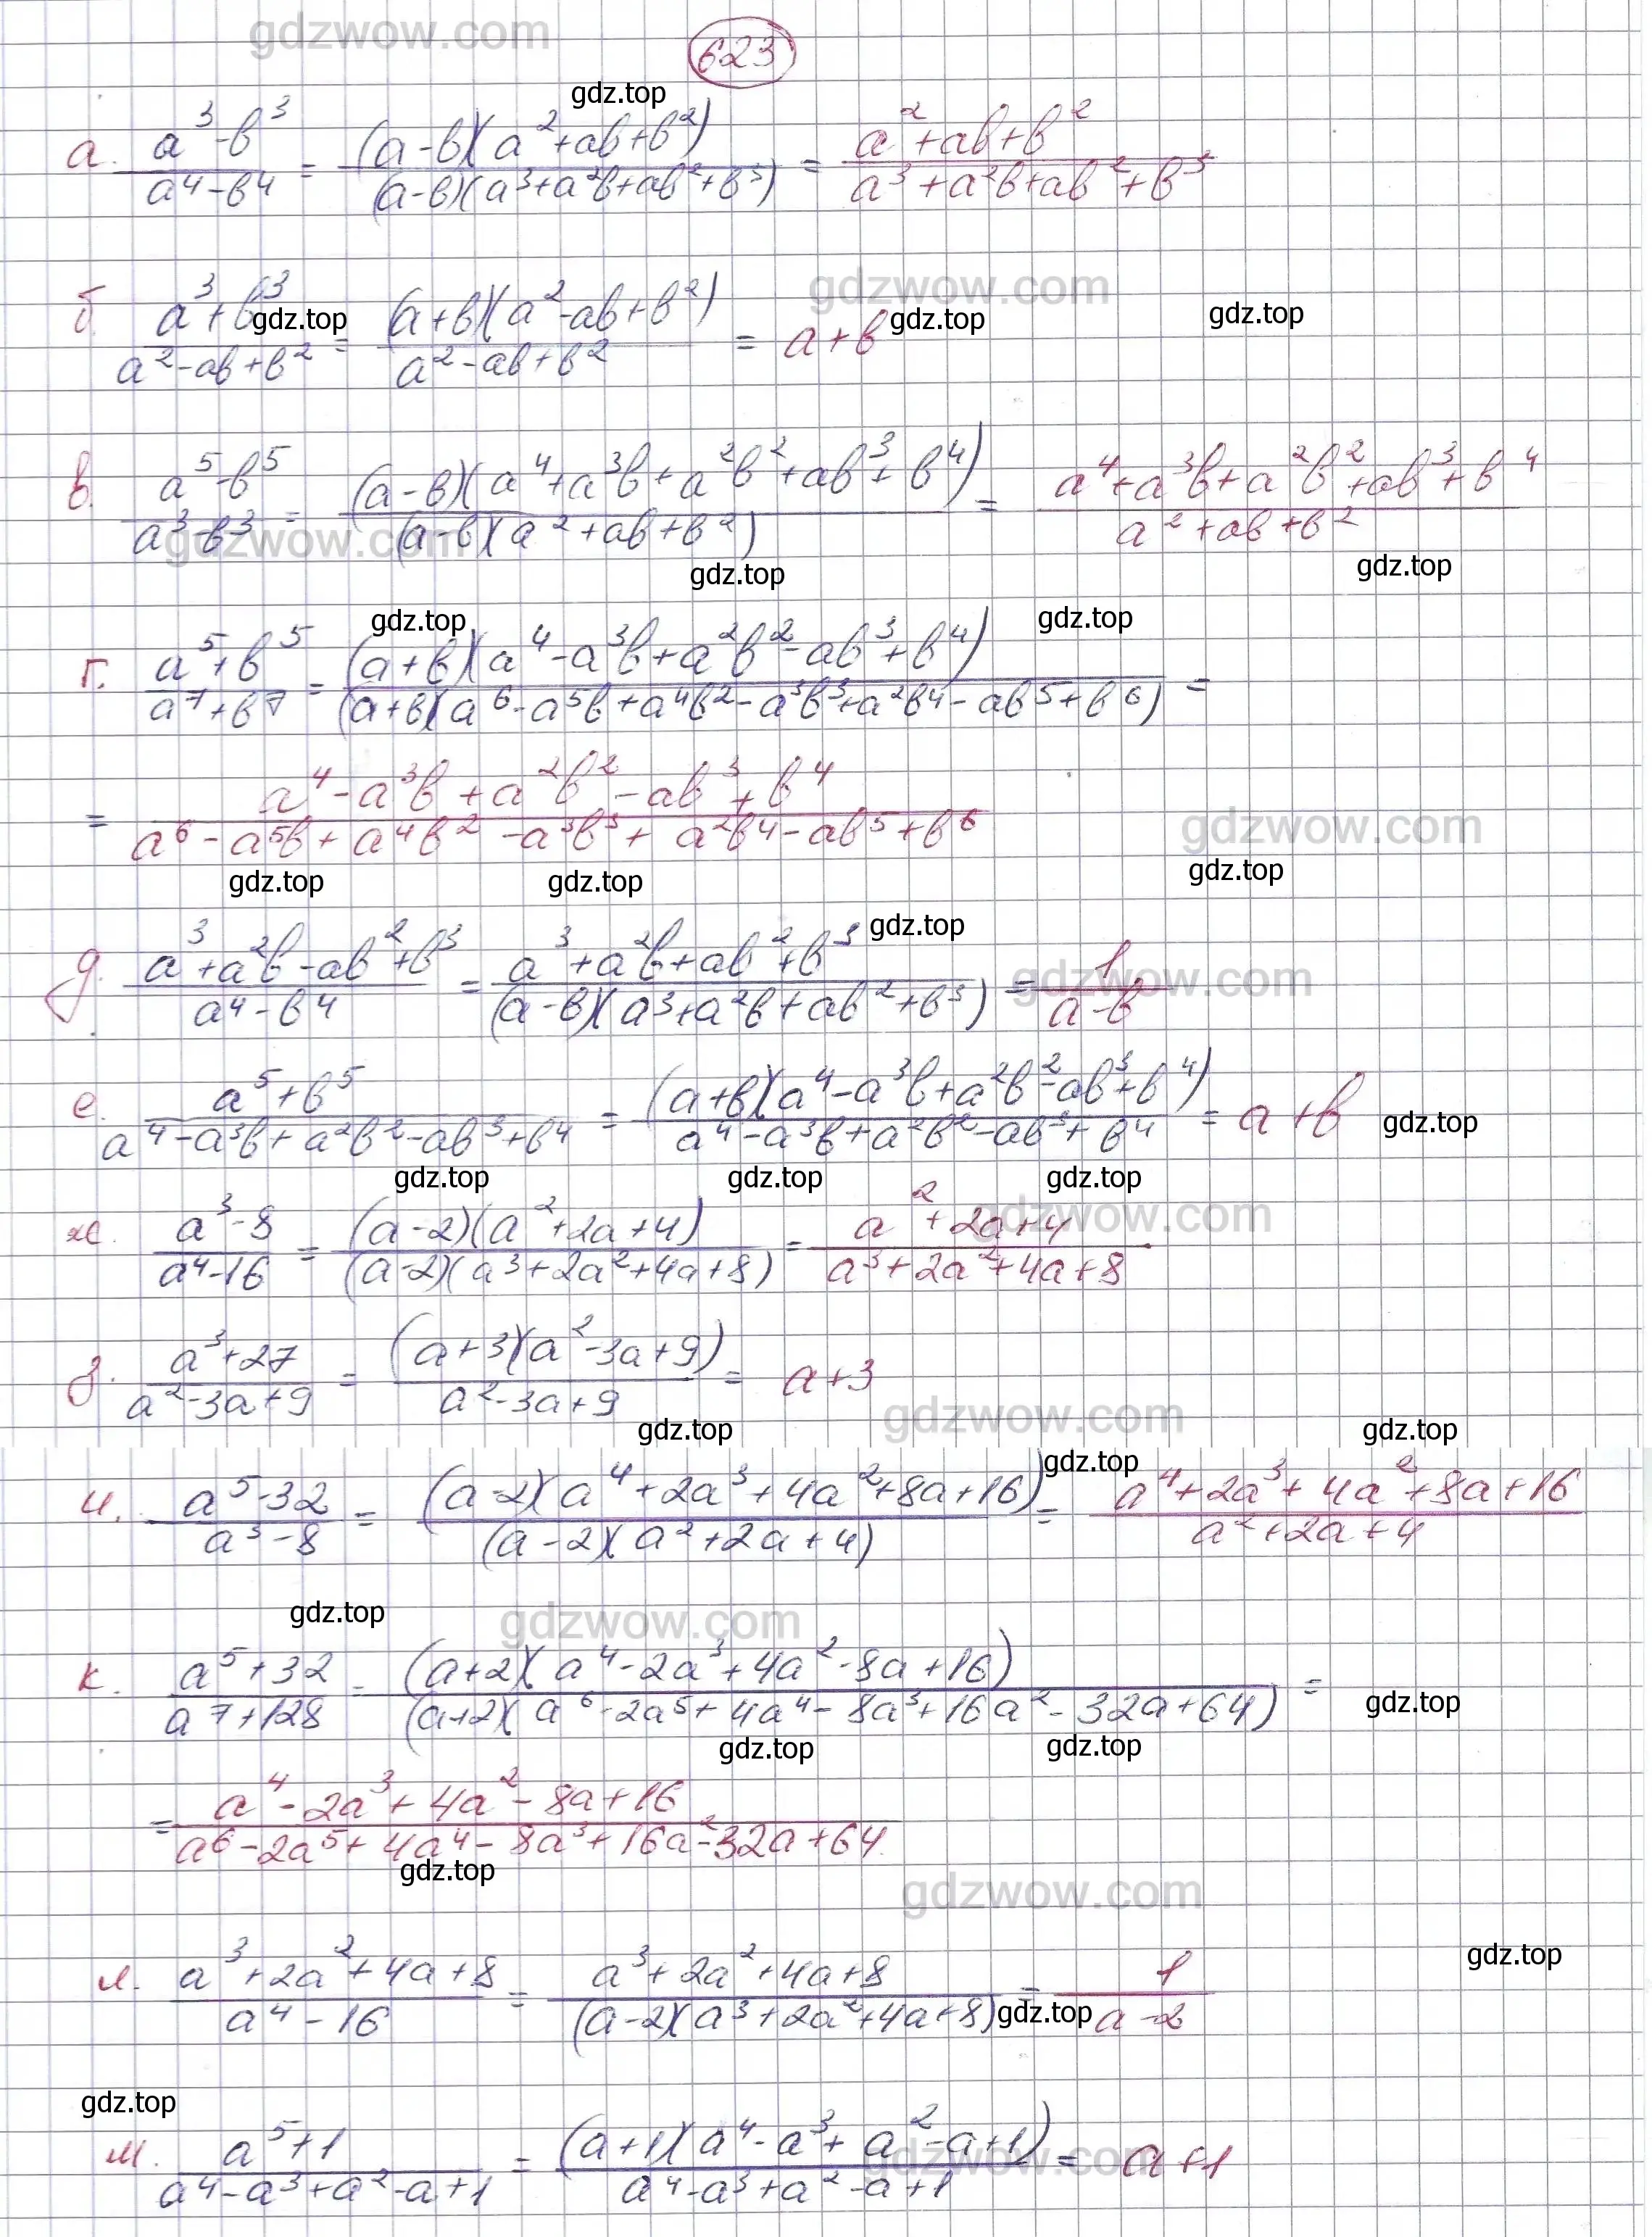 gdzwow.com
623
gdz.top
а. (a³-b³)/(a⁴-b⁴) = ((a-b)(a²+ab+b²))/((a-b)(a³+a²b+ab²+b³)) = (a²+ab+b²)/(a³+a²b+ab²+b³)
gdzwow.com
б. (a³+b³)/(a²-ab+b²) = ((a+b)(a²-ab+b²))/(a²-ab+b²) = a+b
gdz.top gdz.top gdz.top
в. (a⁵-b⁵)/(a³-b³) = ((a-b)(a⁴+a³b+a²b²+ab³+b⁴))/((a-b)(a²+ab+b²)) = (a⁴+a³b+a²b²+ab³+b⁴)/(a²+ab+b²)
gdzwow.com
gdz.top gdz.top
gdz.top gdz.top
г. (a⁵+b⁵)/(a⁷+b⁷) = ((a+b)(a⁴-a³b+a²b²-ab³+b⁴))/((a+b)(a⁶-a⁵b+a⁴b²-a³b³+a²b⁴-ab⁵+b⁶)) =
= (a⁴-a³b+a²b²-ab³+b⁴)/(a⁶-a⁵b+a⁴b²-a³b³+a²b⁴-ab⁵+b⁶)
gdzwow.com
gdz.top gdz.top gdz.top
gdz.top
д. (a³+a²b-ab²+b³)/(a⁴-b⁴) = (a³+a²b+ab²+b³)/((a-b)(a³+a²b+ab²+b³)) = 1/(a-b)
gdzwow.com
е. (a⁵+b⁵)/(a⁴-a³b+a²b²-ab³+b⁴) = ((a+b)(a⁴-a³b+a²b²-ab³+b⁴))/(a⁴-a³b+a²b²-ab³+b⁴) = a+b
gdz.top
gdz.top gdz.top gdz.top
ж. (a³-8)/(a⁴-16) = ((a-2)(a²+2a+4))/((a-2)(a³+2a²+4a+8)) = (a²+2a+4)/(a³+2a²+4a+8)
gdzwow.com
з. (a³+27)/(a²-3a+9) = ((a+3)(a²-3a+9))/(a²-3a+9) = a+3
gdzwow.com
gdz.top gdz.top
gdz.top
и. (a⁵-32)/(a³-8) = ((a-2)(a⁴+2a³+4a²+8a+16))/((a-2)(a²+2a+4)) = (a⁴+2a³+4a²+8a+16)/(a²+2a+4)
gdz.top gdzwow.com
к. (a⁵+32)/(a⁷+128) = ((a+2)(a⁴-2a³+4a²-8a+16))/((a+2)(a⁶-2a⁵+4a⁴-8a³+16a²-32a+64)) =
gdz.top
gdz.top gdz.top
= (a⁴-2a³+4a²-8a+16)/(a⁶-2a⁵+4a⁴-8a³+16a²-32a+64)
gdz.top
gdzwow.com
л. (a³+2a²+4a+8)/(a⁴-16) = (a³+2a²+4a+8)/((a-2)(a³+2a²+4a+8)) = 1/(a-2)
gdz.top
gdz.top
gdz.top
м. (a⁵+1)/(a⁴-a³+a²-a+1) = ((a+1)(a⁴-a³+a²-a+1))/(a⁴-a³+a²-a+1) = a+1
gdzwow.com